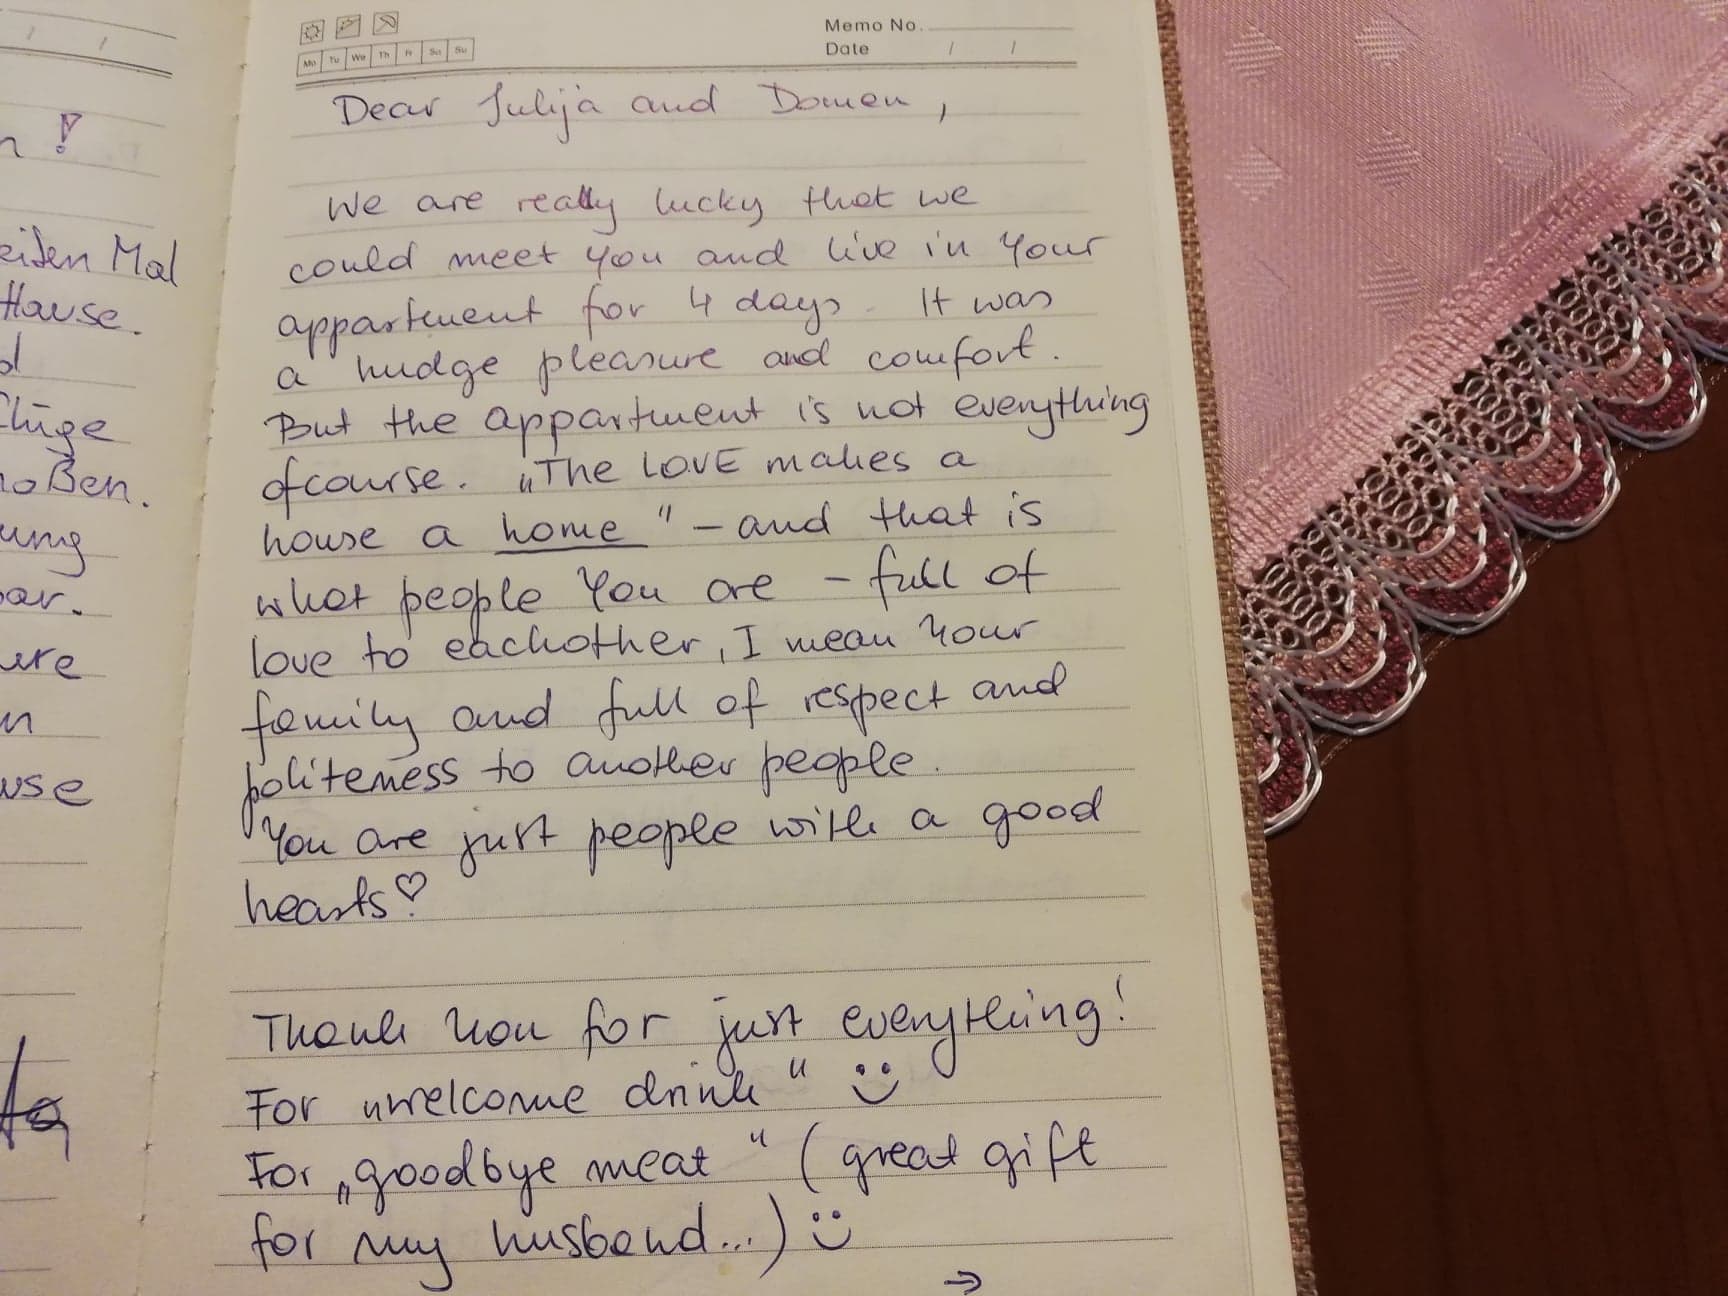 n!
eiten Mal
Hause.
d
oßen.
ung
ar.
ere
n
use
Memo No.
Mo Tu We Th Fr Sa Su
Date / /
Dear Julija and Domen,
We are really lucky that we
could meet You and live in Your
appartment for 4 days. It was
a hudge pleasure and comfort.
But the appartment is not everything
ofcourse. „The LOVE makes a
house a home" – and that is
what people You are – full of
love to eachother, I mean Your
family and full of respect and
politeness to another people.
You are just people with a good
hearts♡
Thank You for just everything!
For „welcome drink" :)
For „goodbye meat" (great gift
for my husband...) :)
→